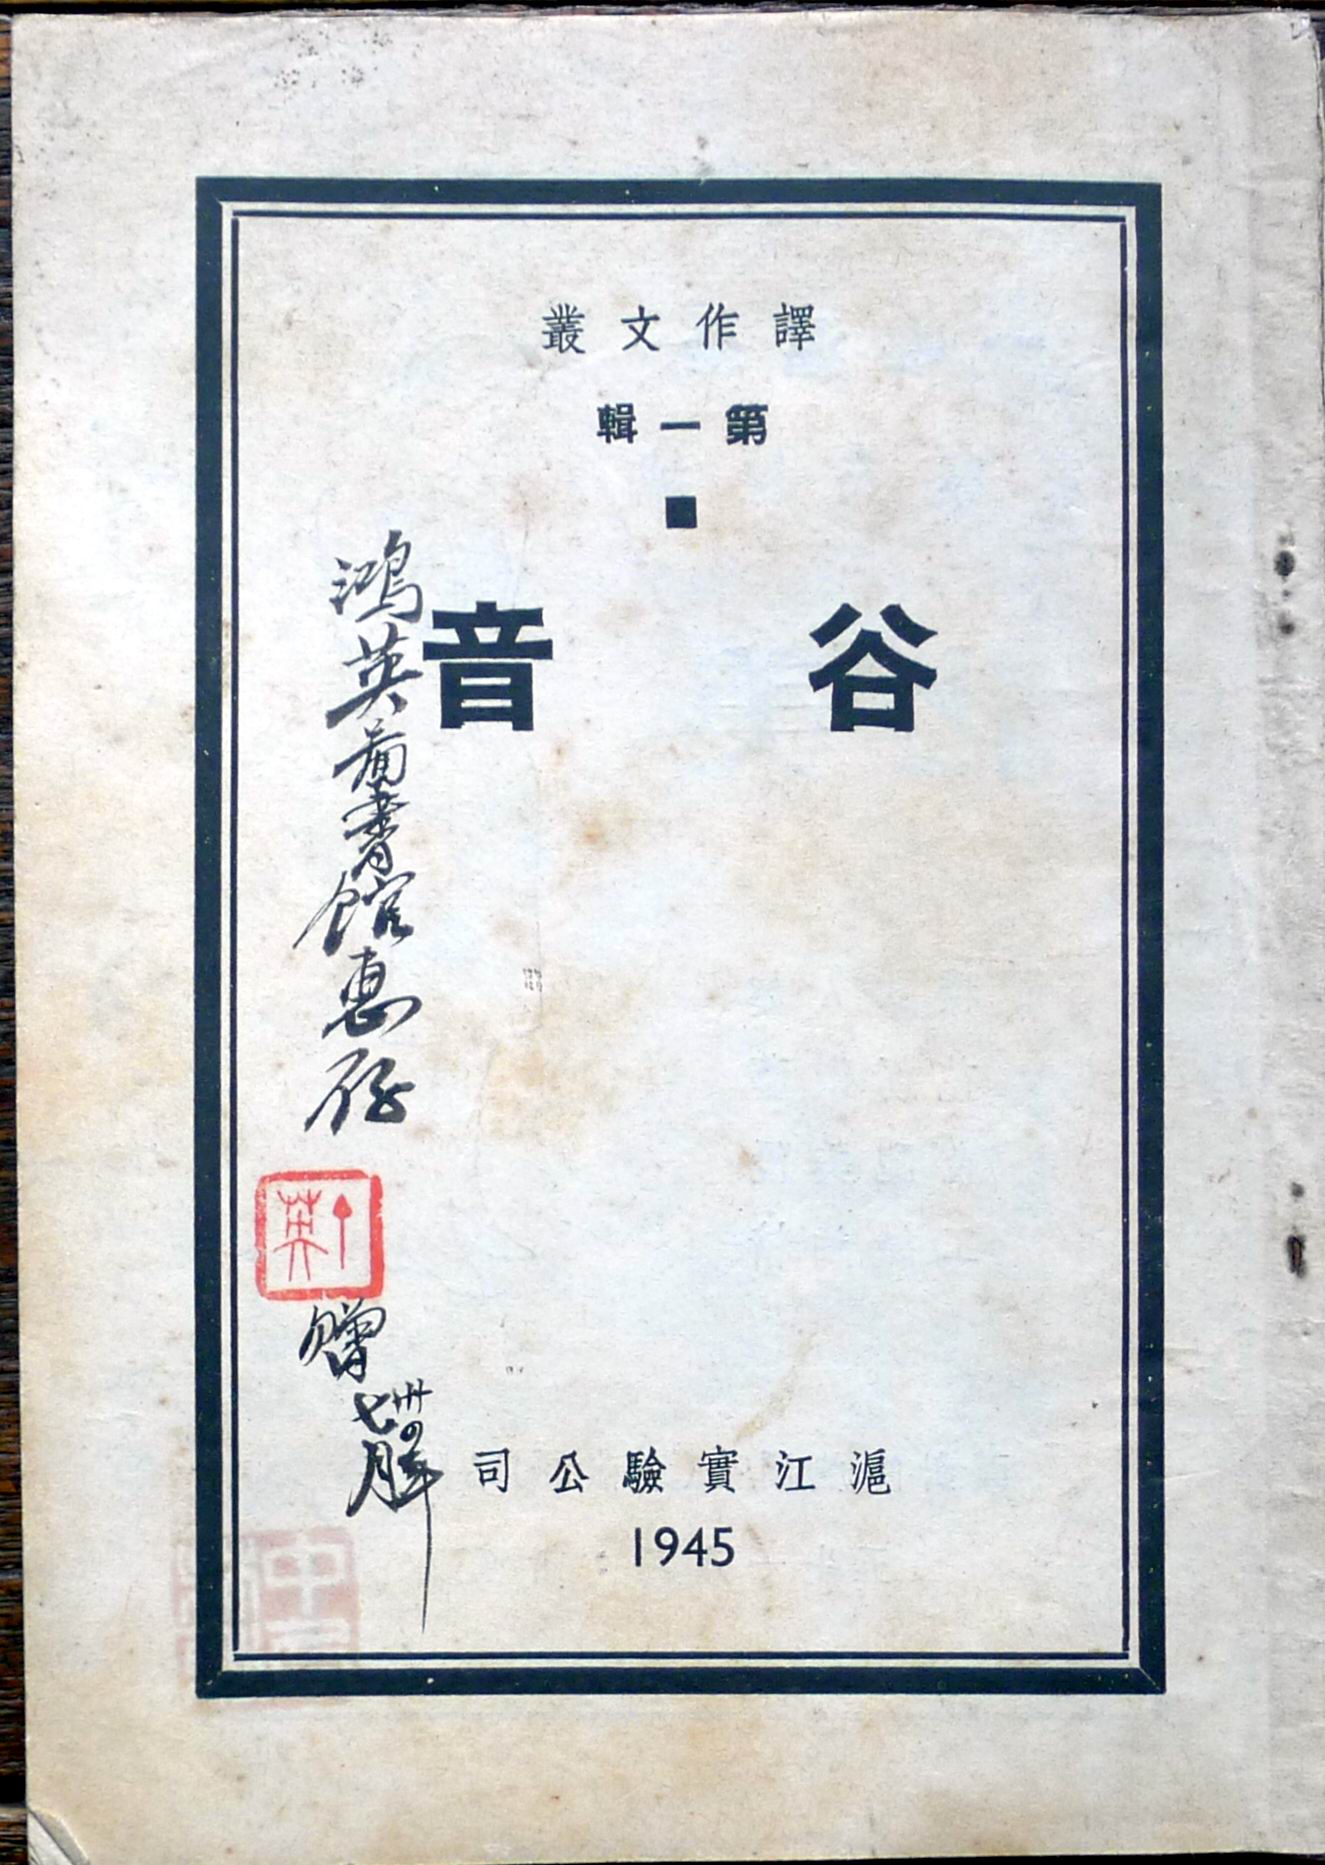 譯作文叢
第一輯
谷音
鴻英圖書館惠存
十英
贈
卅四年
七月
滬江實驗公司
1945